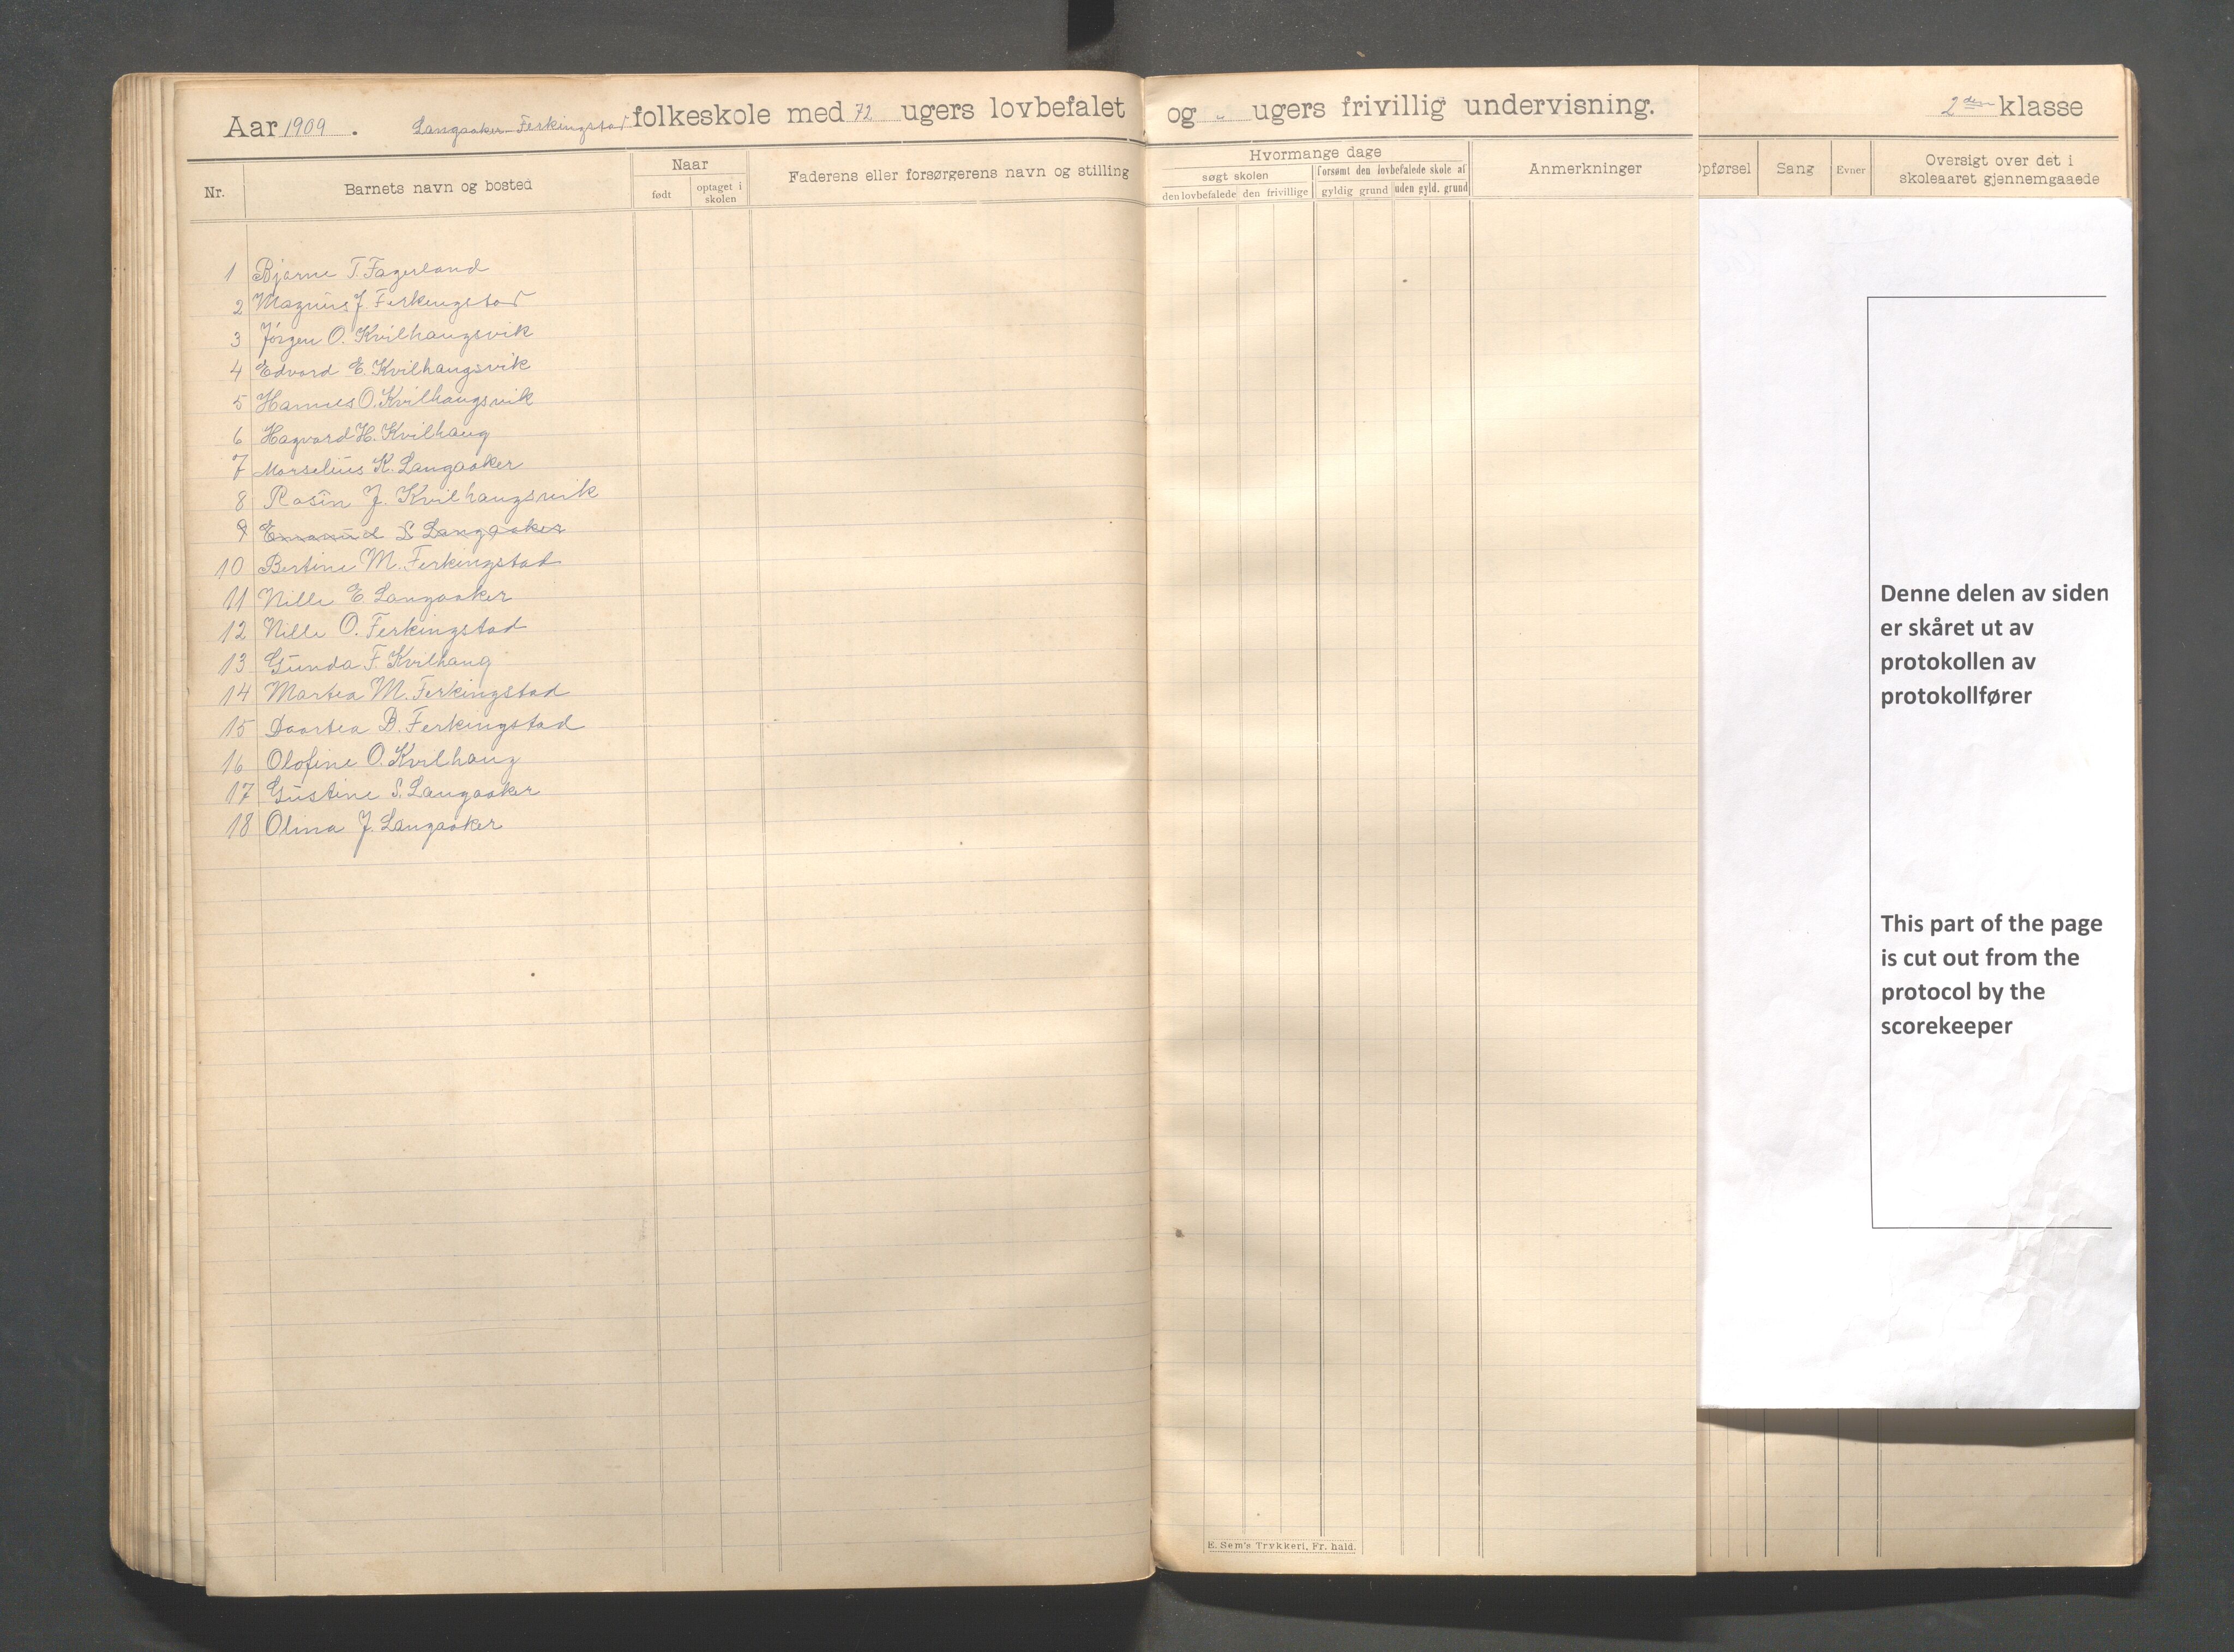 Aar 1909. Langaaker-Ferkingstad folkeskole med 72 ugers lovbefalet og " ugers frivillig undervisning. 2den klasse
Nr.
Barnets navn og bosted
Naar
født
optaget i skolen
Faderens eller forsørgerens navn og stilling
Hvormange dage
søgt skolen
forsømt den lovbefalede skole af
den lovbefalede
den frivillige
gyldig grund
uden gyld. grund
Anmerkninger
Opførsel
Sang
Evner
Oversigt over det i
skoleaaret gjennemgaaede
1 Bjarne T. Fagerland
2 Magnus J Ferkingstad
3 Jørgen O. Kvilhaugsvik
4 Edvard E. Kvilhaugsvik
5 Hannes O. Kvilhaugsvik
6 Hagvard H. Kvilhaug
7 Marselius K. Langaaker
8 Rasin J. Kvilhaugsvik
9 Emanuel S Langaaker
10 Bertine M. Ferkingstad
11 Nille E Langaaker
12 Nille O. Ferkingstad
13 Gunda F. Kvilhaug
14 Martea M. Ferkingstad
15 Daartea B. Ferkingstad
16 Olofine O. Kvilhaug
17 Gustine S. Langaaker
18 Olina J. Langaaker
Denne delen av siden
er skåret ut av
protokollen av
protokollfører
This part of the page
is cut out from the
protocol by the
scorekeeper
E. Sem's Trykkeri, Fr. hald.